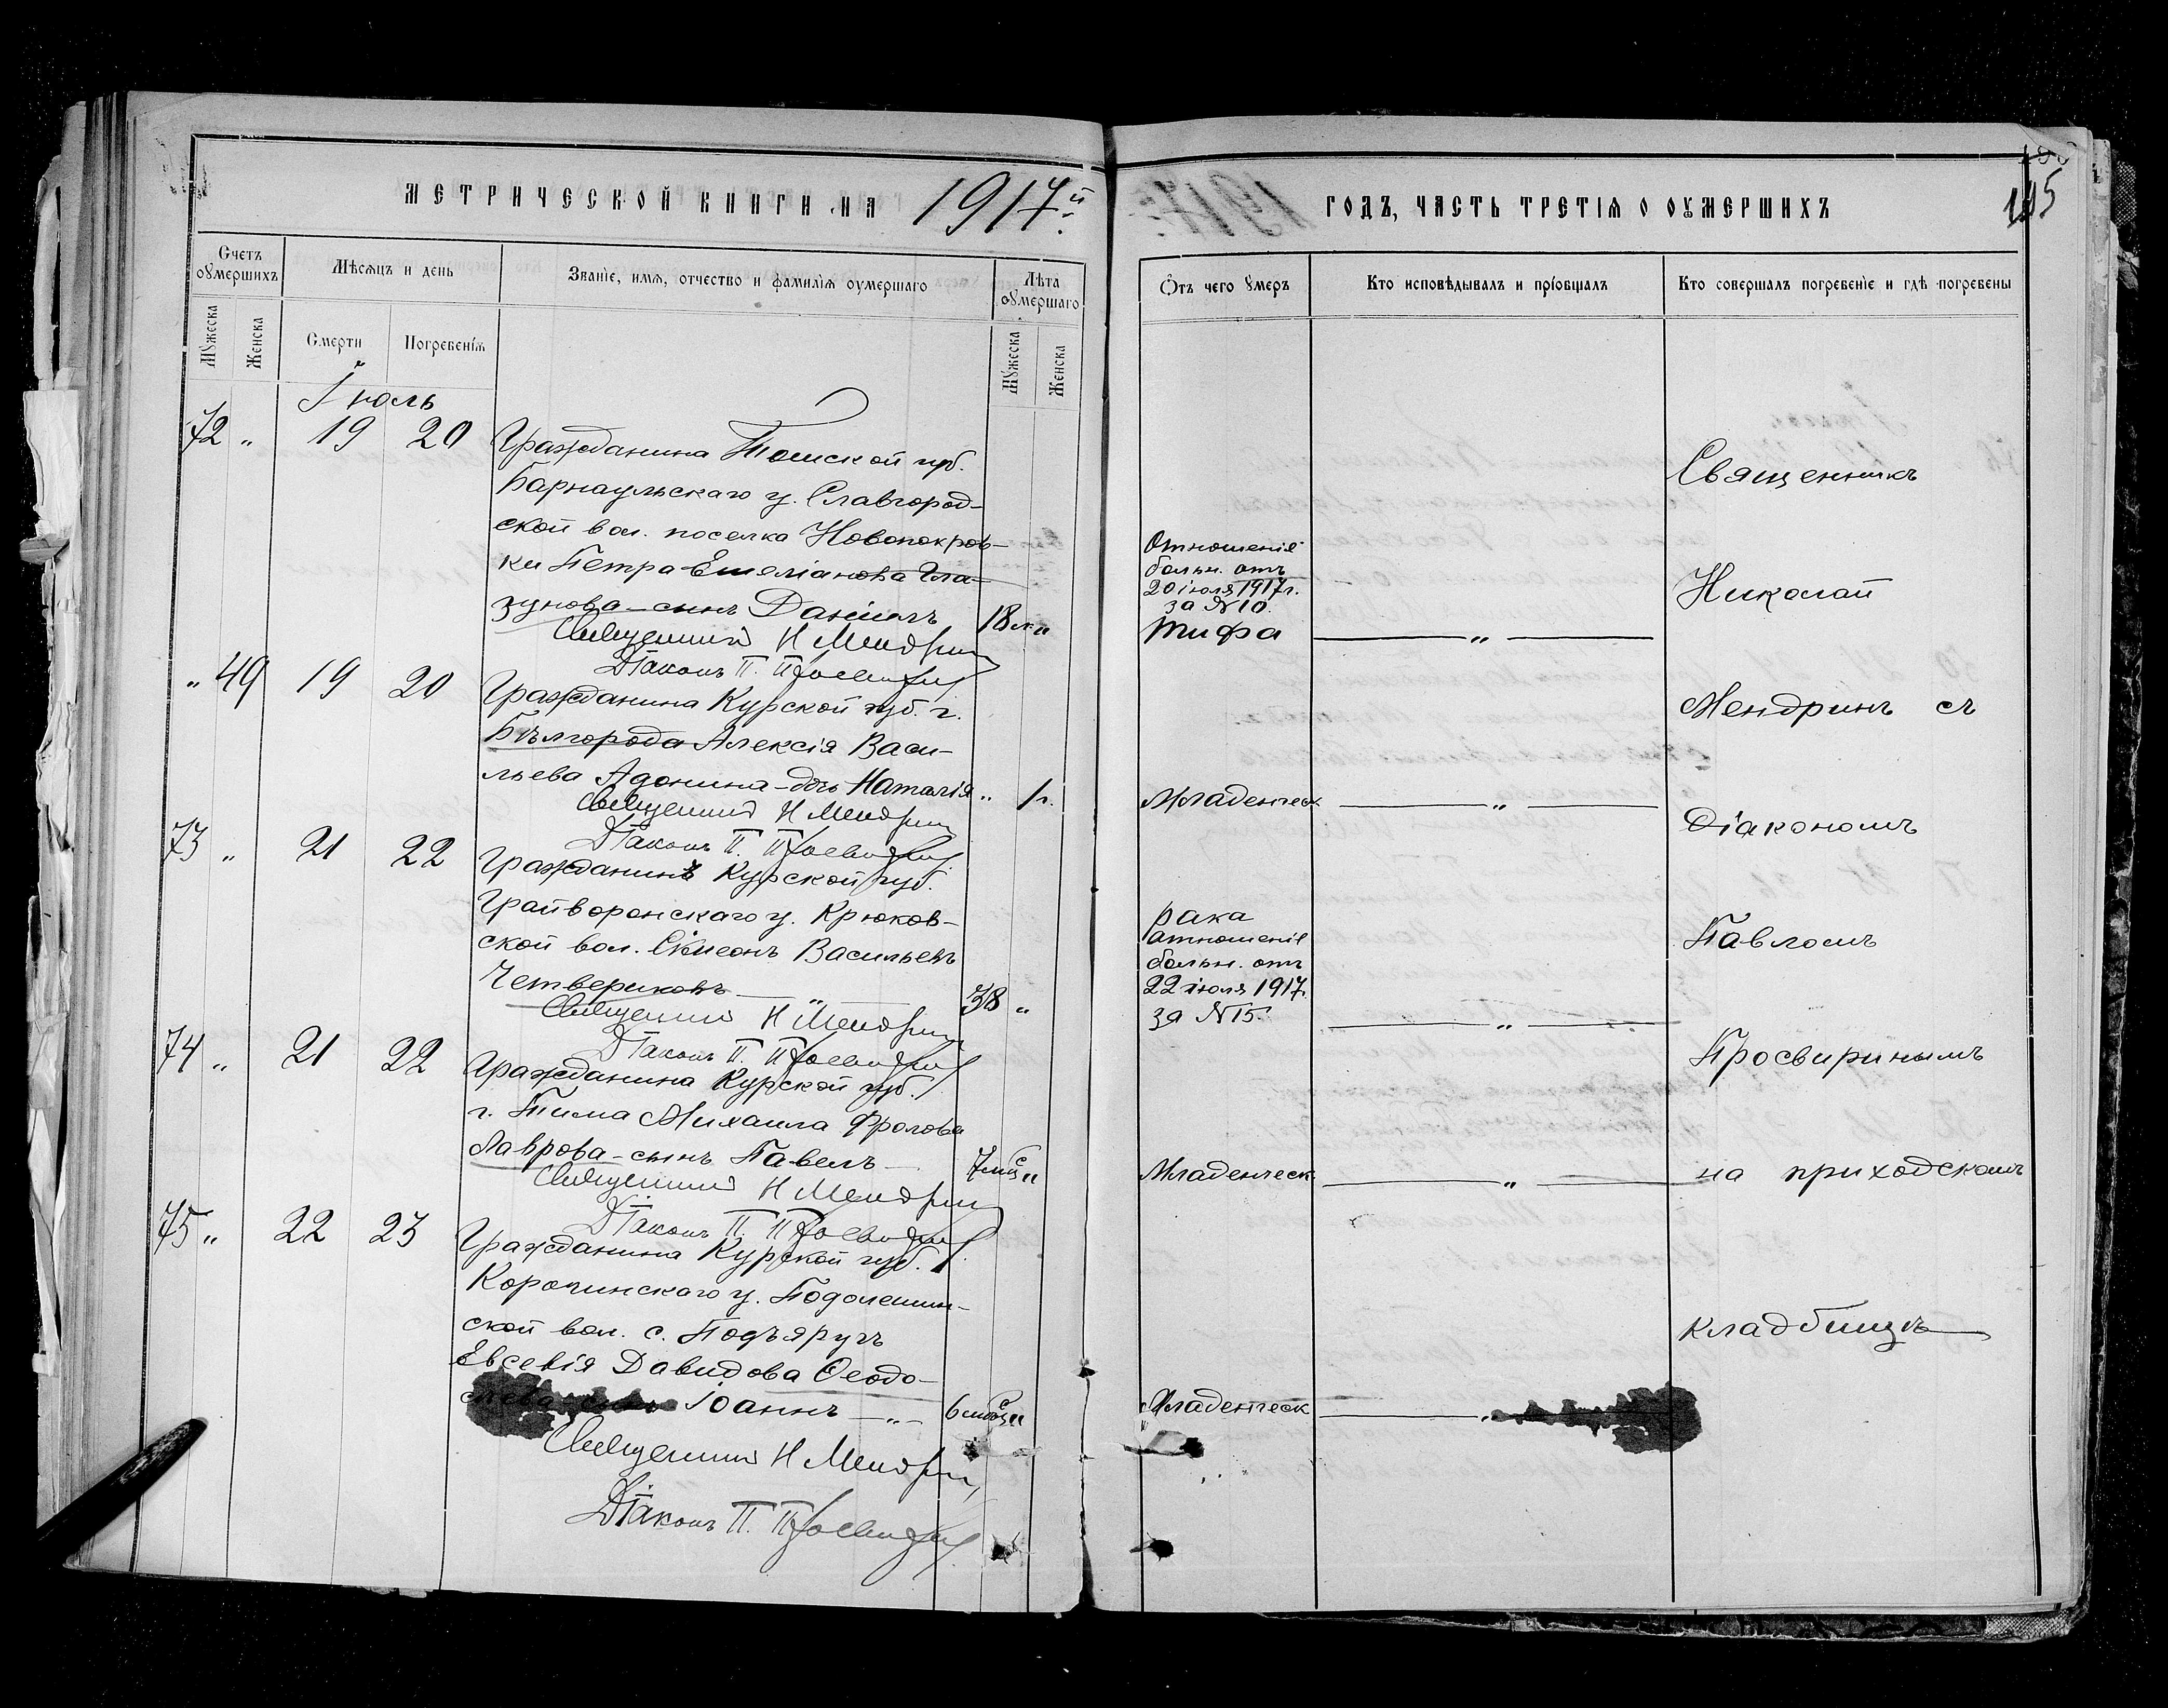 МЕТРИЧЕСКОЙ КНИГИ НА 1917й
Счетъ оумершихъ
Мѣсяцъ и день
Званіе, имя, отчество и фамилія оумершаго
Лѣта оумершаго
Мужеска
Женска
Смерти
Погребенія
Мужеска
Женска
Іюль
72 " 19 20 Гражданина Томской губ.
Барнаульскаго у. Славгород-
ской вол. поселка Новопокров-
ки Петра Емеліанова Гла-
зунова - сынъ Даніилъ 18 л. "
Священникъ Н Мендринъ
Діаконъ П. Просвиринъ
" 49 19 20 Гражданина Курской губ. г.
Бѣлгорода Алексія Васи-
льева Адонина - дочь Наталія " 1 г.
Священникъ Н Мендринъ
Діаконъ П. Просвиринъ
73 " 21 22 Гражданинъ Курской губ.
Грайворонскаго у. Крюков-
ской вол. Симеонъ Васильевъ
Четвериковъ " 38 "
Священникъ Н Мендринъ
Діаконъ П. Просвиринъ
74 " 21 22 Гражданина Курской губ.
г. Тима Михаила Фролова
Лаврова - сынъ Павелъ 7 мѣс "
Священникъ Н Мендринъ
Діаконъ П. Просвиринъ
75 " 22 23 Гражданина Курской губ.
Корочинскаго у. Подолешин-
ской вол. с. Подъяругъ
Евсевія Давидова Ѳеодо-
Іоаннъ - " - 6 мѣс "
Священникъ Н Мендринъ
Діаконъ П. Просвиринъ
ГОДЪ, ЧАСТЬ ТРЕТІЯ О ОУМЕРШИХЪ
Отъ чего умеръ
Кто исповѣдывалъ и пріобщалъ
Кто совершалъ погребеніе и гдѣ погребены
Отношеніе
больн. отъ
20 іюля 1917 г.
за № 10.
Тифа "
Младенческ "
рака
отношеніе
больн. отъ
22 іюля 1917 г.
за № 15. "
Младенческ "
Младенческ "
Священникъ
Николай
Мендринъ съ
Діакономъ
Павломъ
Просвиринымъ
на приходскомъ
кладбищѣ